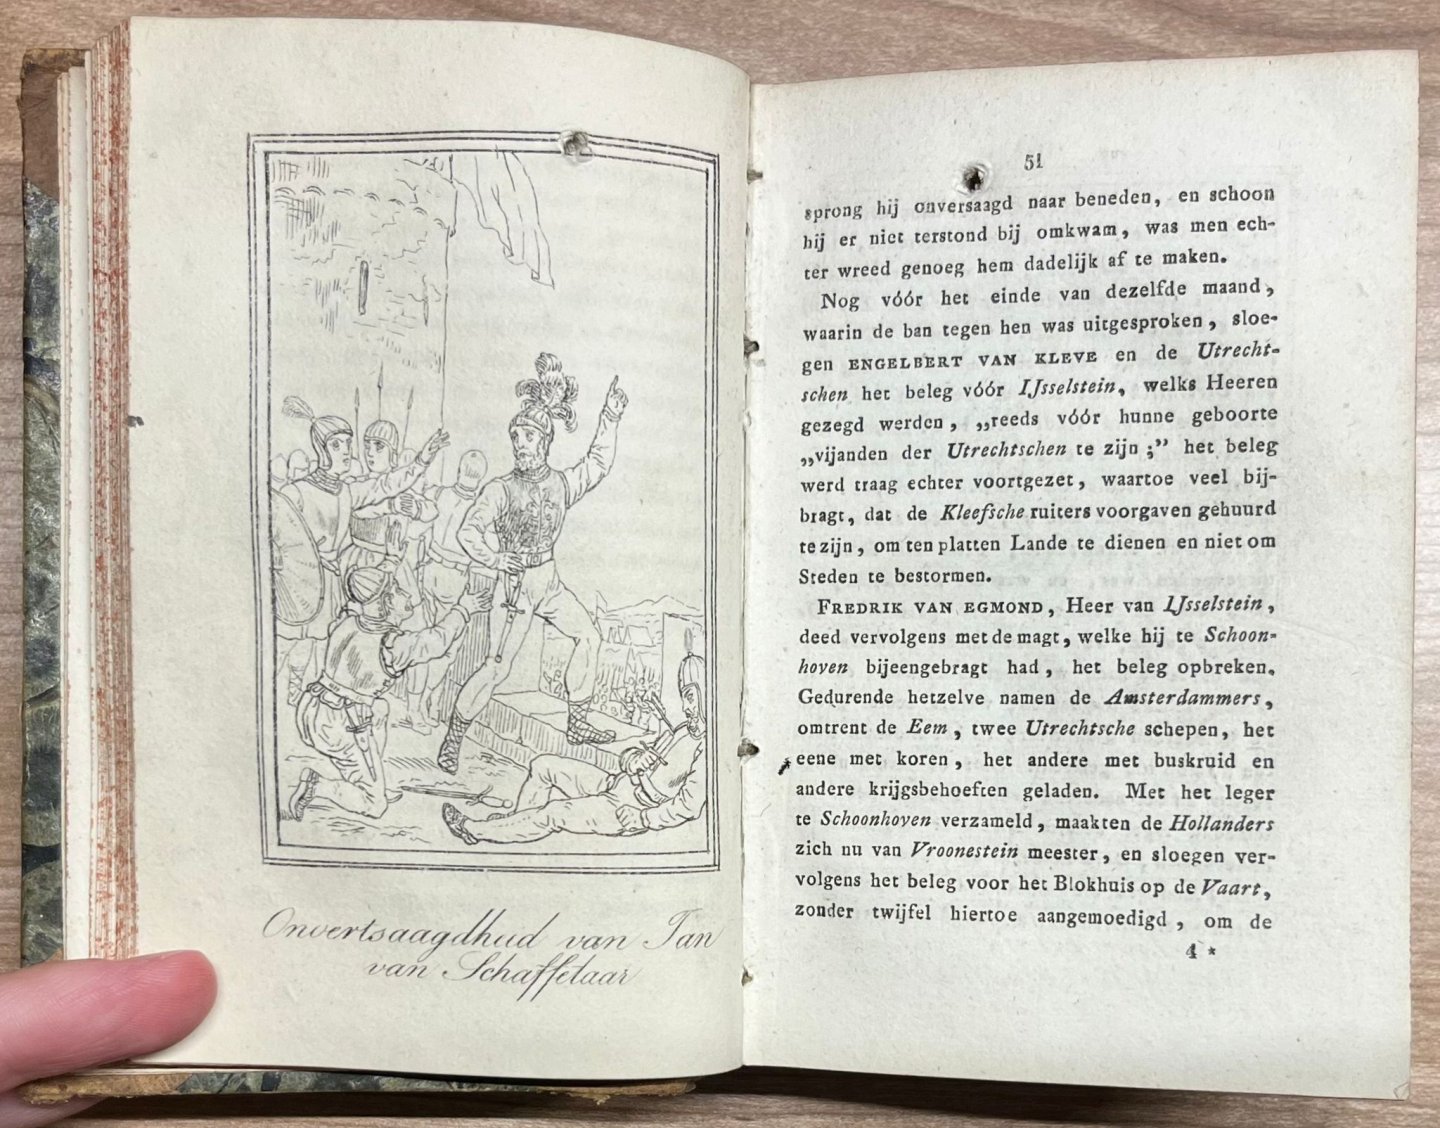 Onvertsaagdhud van Jan
van Schaffelaar
51
sprong hij onversaagd naar beneden, en schoon
hij er niet terstond bij omkwam, was men ech-
ter wreed genoeg hem dadelijk af te maken.
Nog vóór het einde van dezelfde maand,
waarin de ban tegen hen was uitgesproken, sloe-
gen ENGELBERT VAN KLEVE en de Utrecht-
schen het beleg vóór IJsselstein, welks Heeren
gezegd werden, „reeds vóór hunne geboorte
„vijanden der Utrechtschen te zijn;” het beleg
werd traag echter voortgezet, waartoe veel bij-
bragt, dat de Kleefsche ruiters voorgaven gehuurd
te zijn, om ten platten Lande te dienen en niet om
Steden te bestormen.
FREDRIK VAN EGMOND, Heer van IJsselstein,
deed vervolgens met de magt, welke hij te Schoon-
hoven bijeengebragt had, het beleg opbreken.
Gedurende hetzelve namen de Amsterdammers,
omtrent de Eem, twee Utrechtsche schepen, het
eene met koren, het andere met buskruid en
andere krijgsbehoeften geladen. Met het leger
te Schoonhoven verzameld, maakten de Hollanders
zich nu van Vroonestein meester, en sloegen ver-
volgens het beleg voor het Blokhuis op de Vaart,
zonder twijfel hiertoe aangemoedigd, om de
4 *